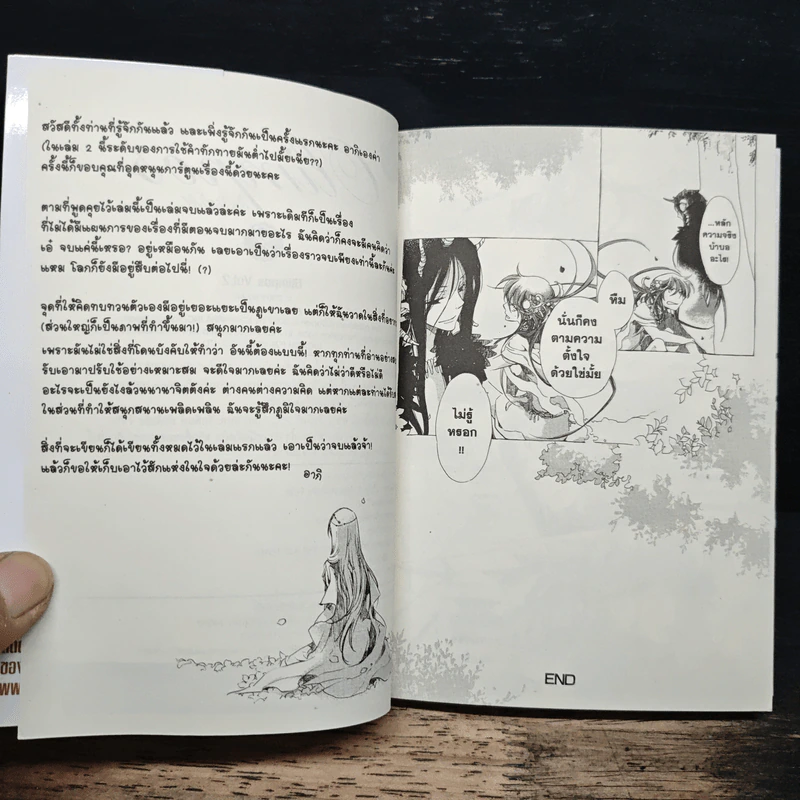 สวัสดีทั้งท่านที่รู้จักกันแล้ว และเพิ่งรู้จักกันเป็นครั้งแรกนะคะ อากิเองค่า
(ในเล่ม 2 นี้ระดับของการใช้คำทักทายมันต่ำไปมั้ยเนี่ย??)
ครั้งนี้ก็ขอบคุณที่อุดหนุนการ์ตูนเรื่องนี้ด้วยนะคะ
ตามที่พูดคุยไว้เล่มนี้เป็นเล่มจบแล้วล่ะค่ะ เพราะเดิมทีก็เป็นเรื่อง
ที่ไม่ได้มีแผนการของเรื่องที่มีตอนจบมากมายอะไร ฉันคิดว่าก็คงจะมีคนคิดว่า
เอ๋ จบแค่นี้เหรอ? อยู่เหมือนกัน เลยเอาเป็นว่าเรื่องราวจบเพียงเท่านี้ละกันค่ะ
แหม โลกก็ยังมีอยู่สืบต่อไปนี่! (?)
จุดที่ให้คิดทบทวนตัวเองมีอยู่เยอะแยะเป็นภูเขาเลย แต่ก็ให้ฉันวาดในสิ่งที่
(ส่วนใหญ่ก็เป็นภาพที่ทำขึ้นมา!) สนุกมากเลยค่ะ
เพราะมันไม่ใช่สิ่งที่โดนบังคับให้ทำว่า อันนี้ต้องแบบนี้! หากทุกท่านที่อ่าน
รับเอามาปรับใช้อย่างเหมาะสม จะดีใจมากเลยค่ะ ฉันคิดว่าไม่ว่าดีหรือไม่ดี
อะไรจะเป็นยังไงล้วนนานาจิตตังค่ะ ต่างคนต่างความคิด แต่หากแต่ละท่านได้
ในส่วนที่ทำให้สนุกสนานเพลิดเพลิน ฉันจะรู้สึกภูมิใจมากเลยค่ะ
สิ่งที่จะเขียนก็ได้เขียนทั้งหมดไว้ในเล่มแรกแล้ว เอาเป็นว่าจบแล้วจ้า!
แล้วก็ขอให้เก็บเอาไว้สักแห่งในใจด้วยล่ะกันนะคะ!
อากิ
...หลัก
ความจริง
บ้าบอ
อะไร!
หึม
นั่นก็คง
ตามความ
ตั้งใจ
ด้วยใช่มั้ย
ไม่รู้
หรอก
!!
END
ของ